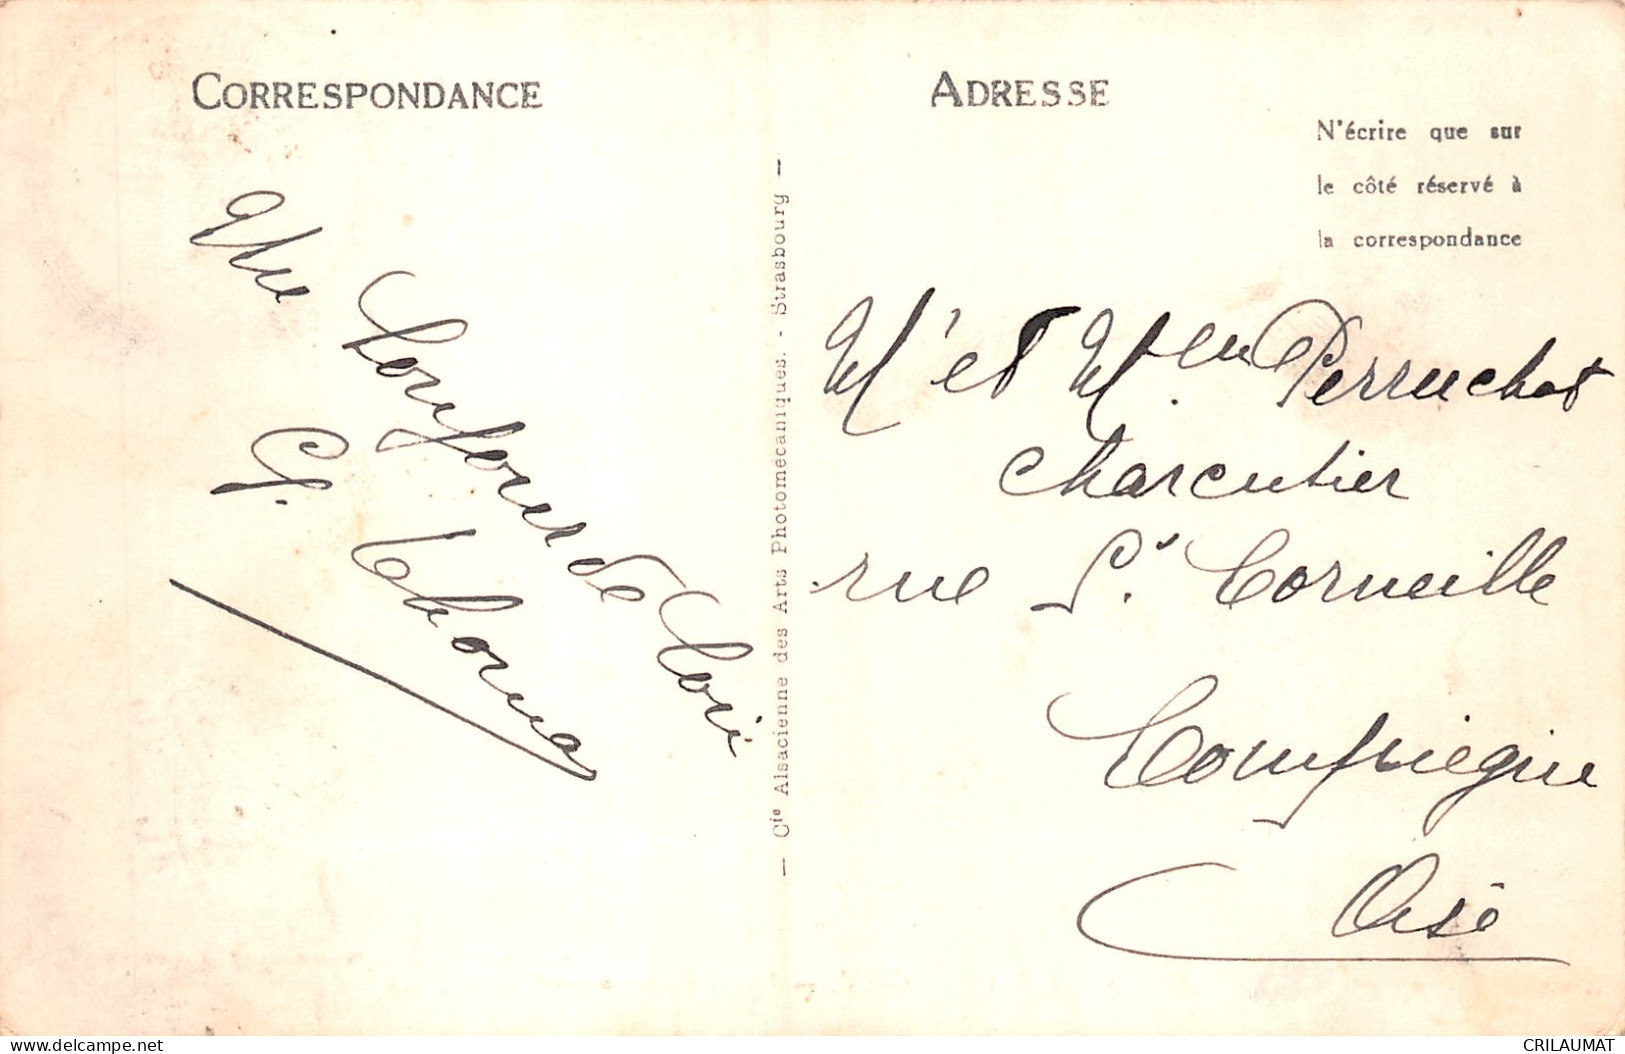 CORRESPONDANCE
Un bonjour de loin
G. Thomas
— Cie Alsacienne des Arts Photomécaniques. - Strasbourg —
ADRESSE
N'écrire que sur
le côté réservé à
la correspondance
Mr et Mme Perruchot
charcutier
rue St. Corneille
Compiègne
Oise
CRILAUMAT